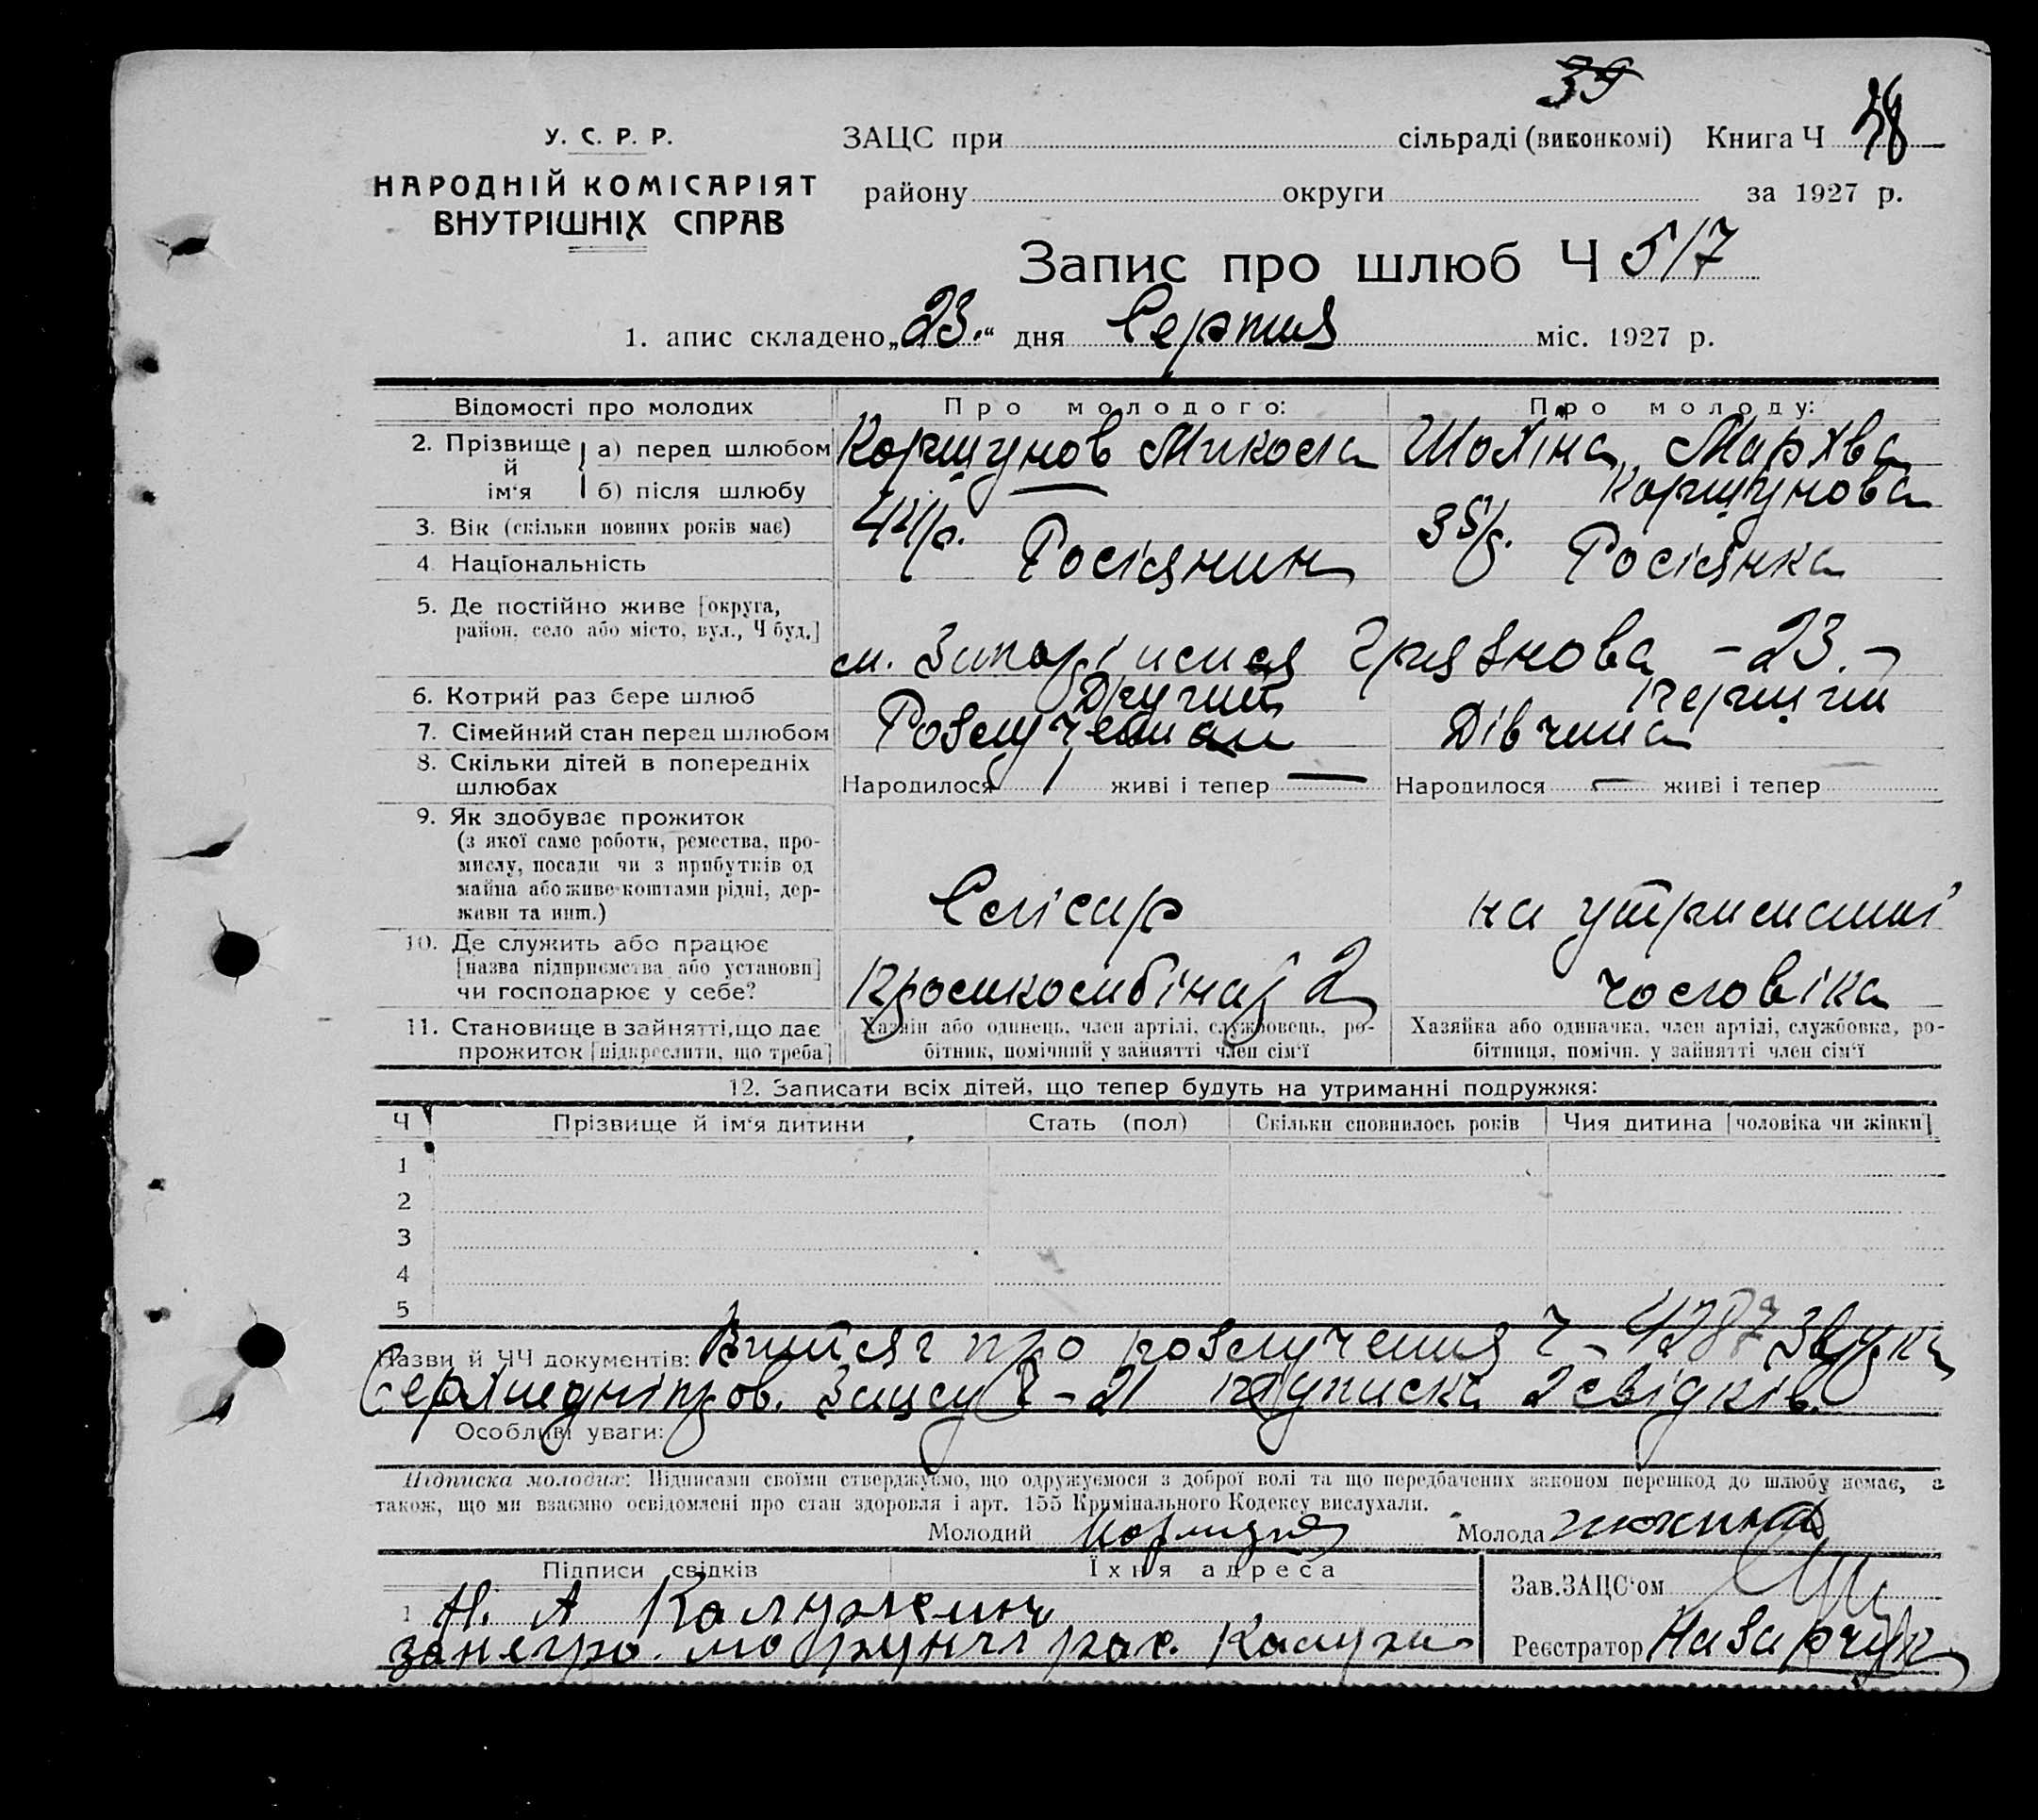 39
У. С. Р. Р.
НАРОДНІЙ КОМІСАРІЯТ
ВНУТРІШНІХ СПРАВ
ЗАЦС при сільраді (виконкомі) Книга Ч 38
району округи за 1927 р.
Запис про шлюб Ч 517
1. апис складено „23.“ дня Серпня міс. 1927 р.
Відомості про молодих Про молодого: Про молоду:
2. Прізвище й ім‘я а) перед шлюбом Коршунов Микола Шохіна Мархва
б) після шлюбу Коршунова
3. Вік (скільки повних років має) 44 р. 35 р.
4. Національність Росіянин Росіянка
5. Де постійно живе [округа,
район, село або місто, вул., Ч буд.]
м. Запоріжжя Грязнова - 23. -
6. Котрий раз бере шлюб Другий Перший
7. Сімейний стан перед шлюбом Розлучений Дівчина
8. Скільки дітей в попередніх
шлюбах Народилося 1 живі і тепер — Народилося — живі і тепер
9. Як здобуває прожиток
(з якої саме роботи, ремества, про-
мислу, посади чи з прибутків од
майна або живе коштами рідні, дер-
жави та инш.) Слісар на утриманні
10. Де служить або працює
[назва підприємства або установи]
чи господарює у себе? 2 чоловіка
11. Становище в зайнятті, що дає
прожиток [підкреслити, що треба]
Хазяїн або одинець, член артілі, службовець, ро-
бітник, помічний у зайнятті член сім‘ї
Хазяйка або одиначка, член артілі, службовка, ро-
бітниця, помічн. у зайнятті член сім‘ї
12. Записати всіх дітей, що тепер будуть на утриманні подружжя:
Ч Прізвище й ім‘я дитини Стать (пол) Скільки сповнилось років Чия дитина [чоловіка чи жінки]
1
2
3
4
5
Назви й ЧЧ документів: Витяг про розлучення Ч - 4287
Зацсу Ч - 21 підписка 2 свідків.
Особливі уваги:
Підписка молодих: Підписами своїми стверджуємо, що одружуємося з доброї волі та що передбачених законом перешкод до шлюбу немає, а
також, що ми взаємно освідомлені про стан здоровля і арт. 155 Кримінального Кодексу вислухали.
Молодий Молода
Підписи свідків Їхня адреса
Зав. ЗАЦС‘ом
1 Н. А
Реєстратор Назарчук